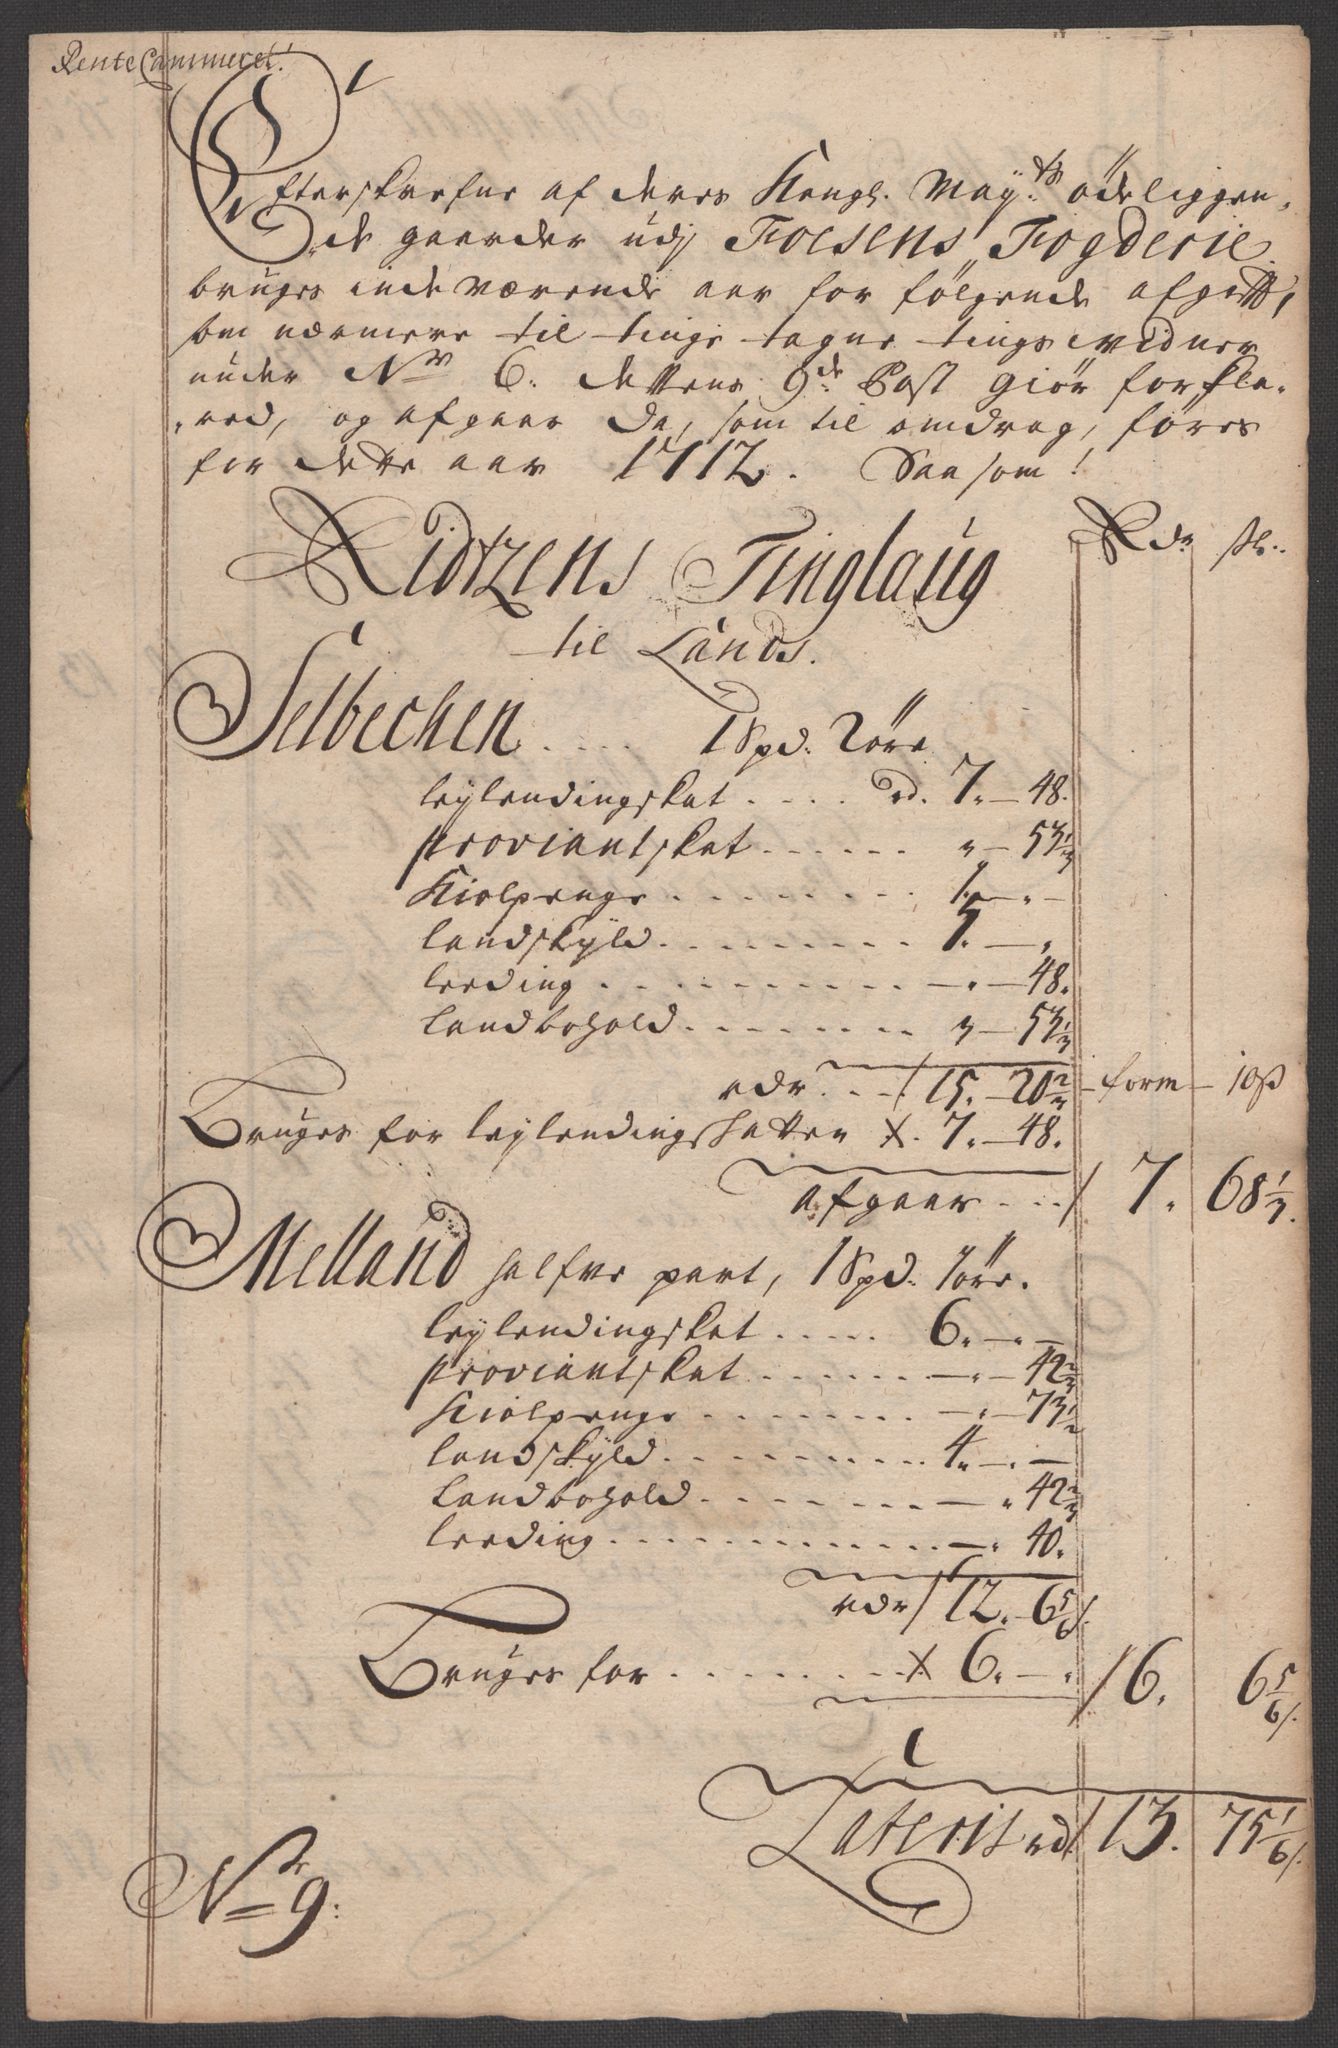 RenteCammeret!
Efterskrefne af deres Kongl. May.ts ödeliggen,
de gaarder udj Foesens Fogderie
bruges inde værende aar for følgende afgift,
om nærmere til tinge tagne tings vidner
under Nr 6. dettens 9de Post giör forkla,
red, og afgaar da, som til omdrag, føres
for dette aar 1712. Saa som!
Ridtzens Tinglaug Rdr sk..
til Lands.
Selbechen .... 1 Spd. 2 öre
leylendingskat .... rd. 7. — 48.
proviantskat ...... " — 53 1/3
Kiolpenge ........ 1. — " —
landskyld ........ 5. — "
leeding .......... — " — 48.
landbohold ........ " — 53 1/3
rdr ... / 15. — 20 2/3 — form — 10 s
Bruges for leylendingskatten X. 7. — 48.
afgaar ... / 7. 68 1/3.
Melland halfve part, 1 Spd. 1 öre.
leylendingskat ..... 6. — " —
proviantskat ....... — " — 42 2/3
Kiolpenge ........ — " — 73 1/2
landskyld .......... 4. — " —
landbohold ........ — " 42 2/3
leeding ............. — " 40.
rdr / 12. — 6 5/6 /.
Bruges for ........ X 6. — " / 6. 6 5/6 /.
Lateris rd / 13. 75 1/6 /.
Nr 9.